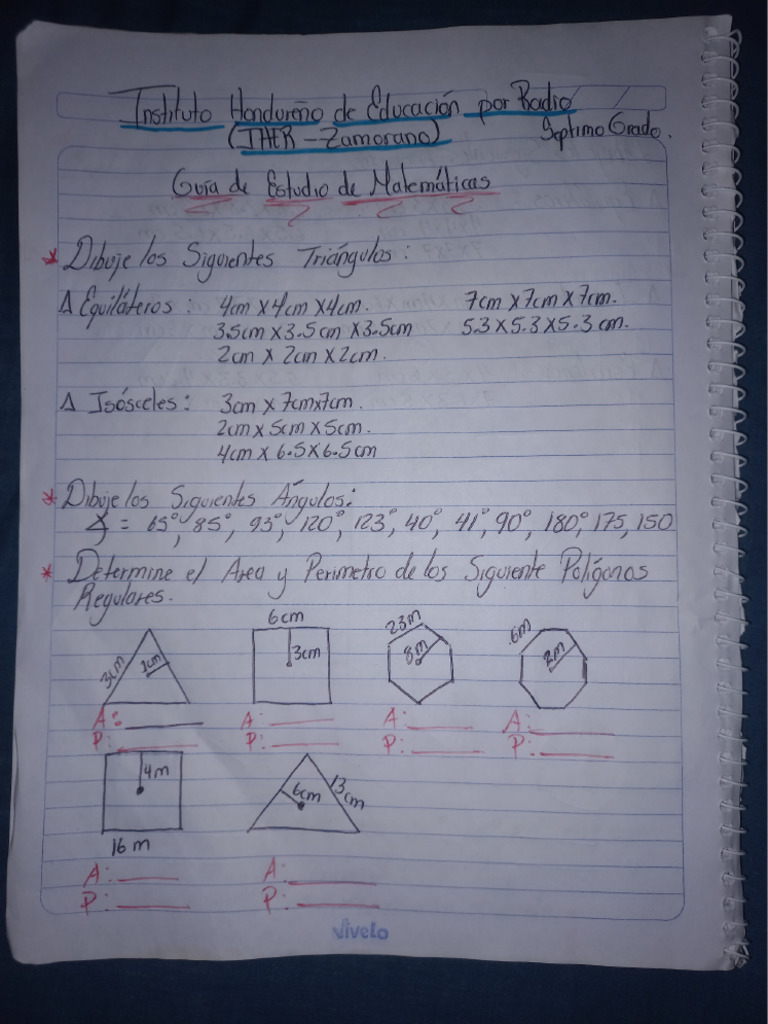 Instituto Hondureño de Educación por Radio
(IHER - Zamorano) Septimo Grado.
Guía de Estudio de Matemáticas
* Dibuje los Siguientes Triángulos:
Δ Equiláteros: 4cm x 4cm x 4cm. 7cm x 7cm x 7cm.
3.5cm x 3.5cm x 3.5cm 5.3 x 5.3 x 5.3 cm.
2cm x 2cm x 2cm.
Δ Isósceles: 3cm x 7cm x 7cm.
2cm x 5cm x 5cm.
4cm x 6.5 x 6.5cm
* Dibuje los Siguientes Ángulos:
∡ = 65°, 85°, 93°, 120°, 123°, 40°, 41°, 90°, 180°, 175, 150
* Determine el Area y Perimetro de los Siguiente Polígonos
Regulares.
3cm 2cm 6cm 3cm 23m 8m 6m 2m
A: A: A: A:
P: P: P: P:
4m 6cm 13cm
16 m
A: A:
P: P:
Vivelo